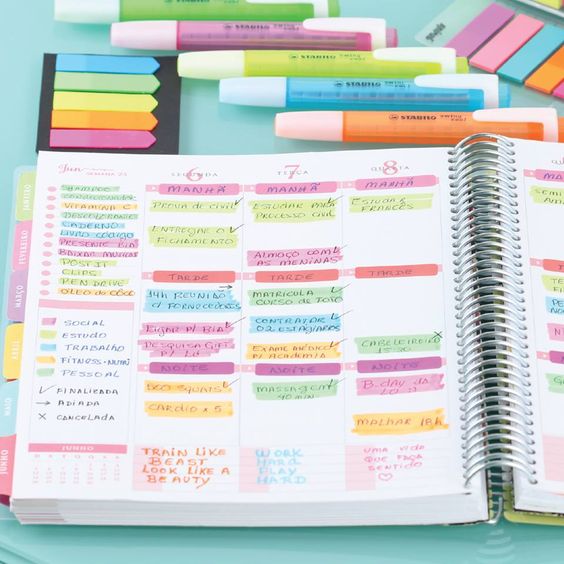 STABILO
STABILO
STABILO swing cool
STABILO swing cool
Jun
SEMANA 23
6
SEGUNDA
7
TERÇA
8
QUARTA
MANHÃ
MANHÃ
MANHÃ
SHAMPOO
CONDICIONADOR
VITAMINA C
CADERNO
LIVRO CÓDIGO
PRESENTE BIA
BAIXAR MÚSICAS
POST IT
CLIPS
PEN DRIVE
ÓLEO DE CÔCO
PROVA DE CIVIL
ENTREGAR O
FICHAMENTO
ESTUDAR
PROCESSO CIVIL
ALMOÇO COM
AS MENINAS
ESTUDAR
FRANCÊS
TARDE
TARDE
TARDE
14H REUNIÃO
C/ FORNECEDORES
LIGAR P/ BIA
PESQUISA GIFT
MATRICULA
CURSO DE FOTO
CONTRATAR
02 ESTAGIÁRIOS
EXAME MÉDICO
P/ ACADEMIA
CABELEIREIRO
15:30
SOCIAL
ESTUDO
TRABALHO
FITNESS-NUTRI
PESSOAL
FINALIZADA
ADIADA
CANCELADA
NOITE
NOITE
NOITE
500 SQUATS
CARDIO X 5
MASSAGEM
40 MIN
B.DAY DA
LU
MALHAR 18H
JUNHO
D S T Q Q S S
TRAIN LIKE
BEAST
LOOK LIKE A
BEAUTY
WORK
HARD
PLAY
HARD
UMA VIDA
QUE FAÇA
SENTIDO
TARDE
NOITE
JUNHO
MAIO
ABRIL
MARÇO
FEVEREIRO
JANEIRO